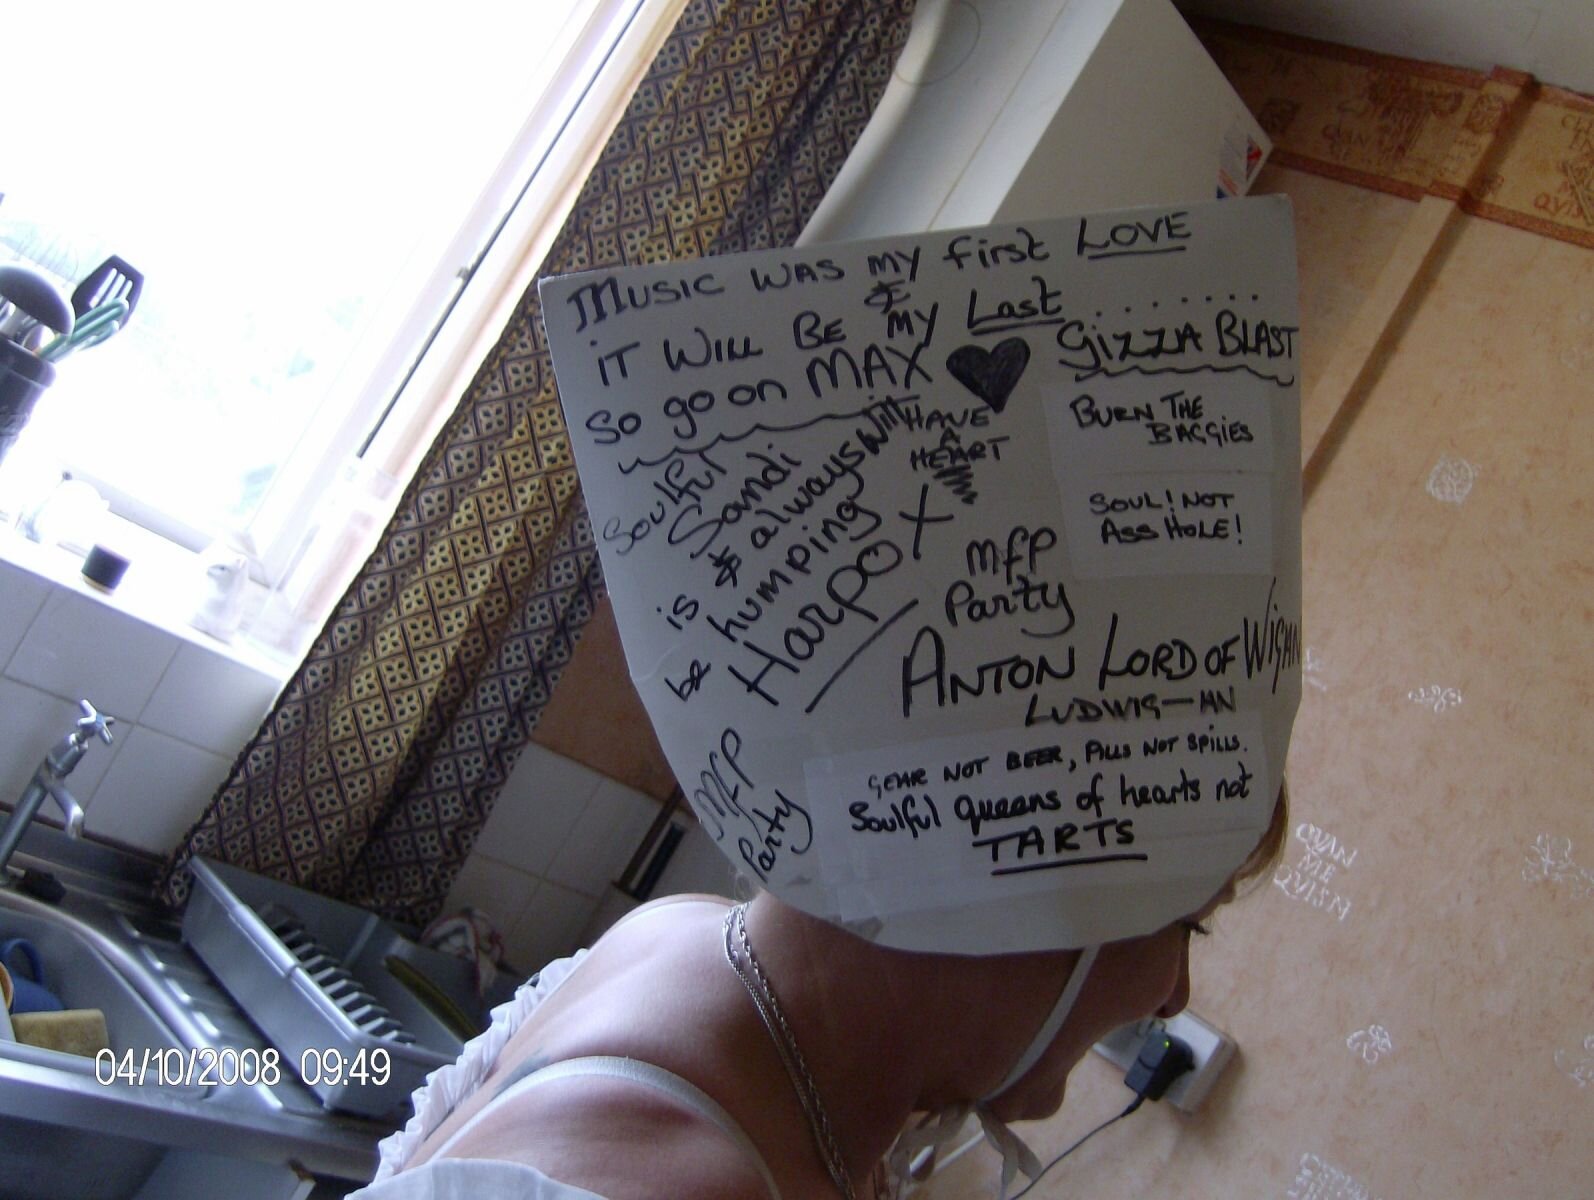 MUSIC WAS MY first LOVE
&
iT WILL BE MY Last........
So go on MAX
GIZZA BLAST
HAVE
A
HEART
BURN THE
BAGGIES
SOUL! NOT
ASS HOLE!
Soulful
Sandi
is & always will
be humping
Harpo X
MFP
Party
ANTON LORD OF WIGAN
LUDWIG-AN
GEAR NOT BEER, PILLS NOT SPILLS.
Soulful queens of hearts not
TARTS
MFP
Party
QVAN
ME
QVISM
04/10/2008 09:49